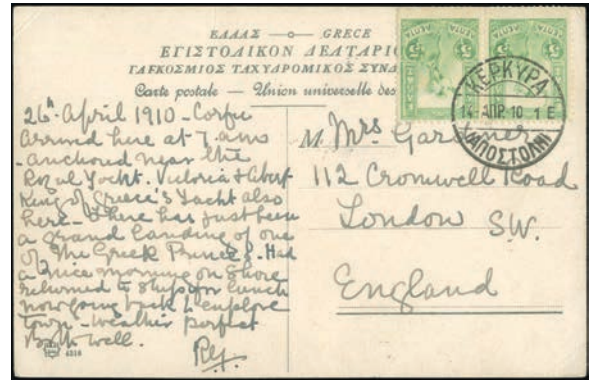 ΕΛΛΑΣ — GRECE
ΕΠΙΣΤΟΛΙΚΟΝ ΔΕΛΤΑΡΙΟ
ΠΑΓΚΟΣΜΙΟΣ ΤΑΧΥΔΡΟΜΙΚΟΣ ΣΥΝΔ
Carte postale — Union universelle des
ΛΕΠΤΑ
ΛΕΠΤΑ
ΚΕΡΚΥΡΑ
14 ΑΠΡ. 10 1 Ε
ΑΠΟΣΤΟΛΗ
26th April 1910 - Corfu
Arrived here at 7 am
- anchored near the
Royal Yacht. Victoria & Albert
King of Greece's Yacht also
here - There has just been
a grand landing of one
of the Greek Princes. Had
a nice morning on shore
returned to ship for lunch
now going back to explore
town - Weather perfect
Both well.
M Mrs Gardiner
112 Cromwell Road
London SW.
England
4316